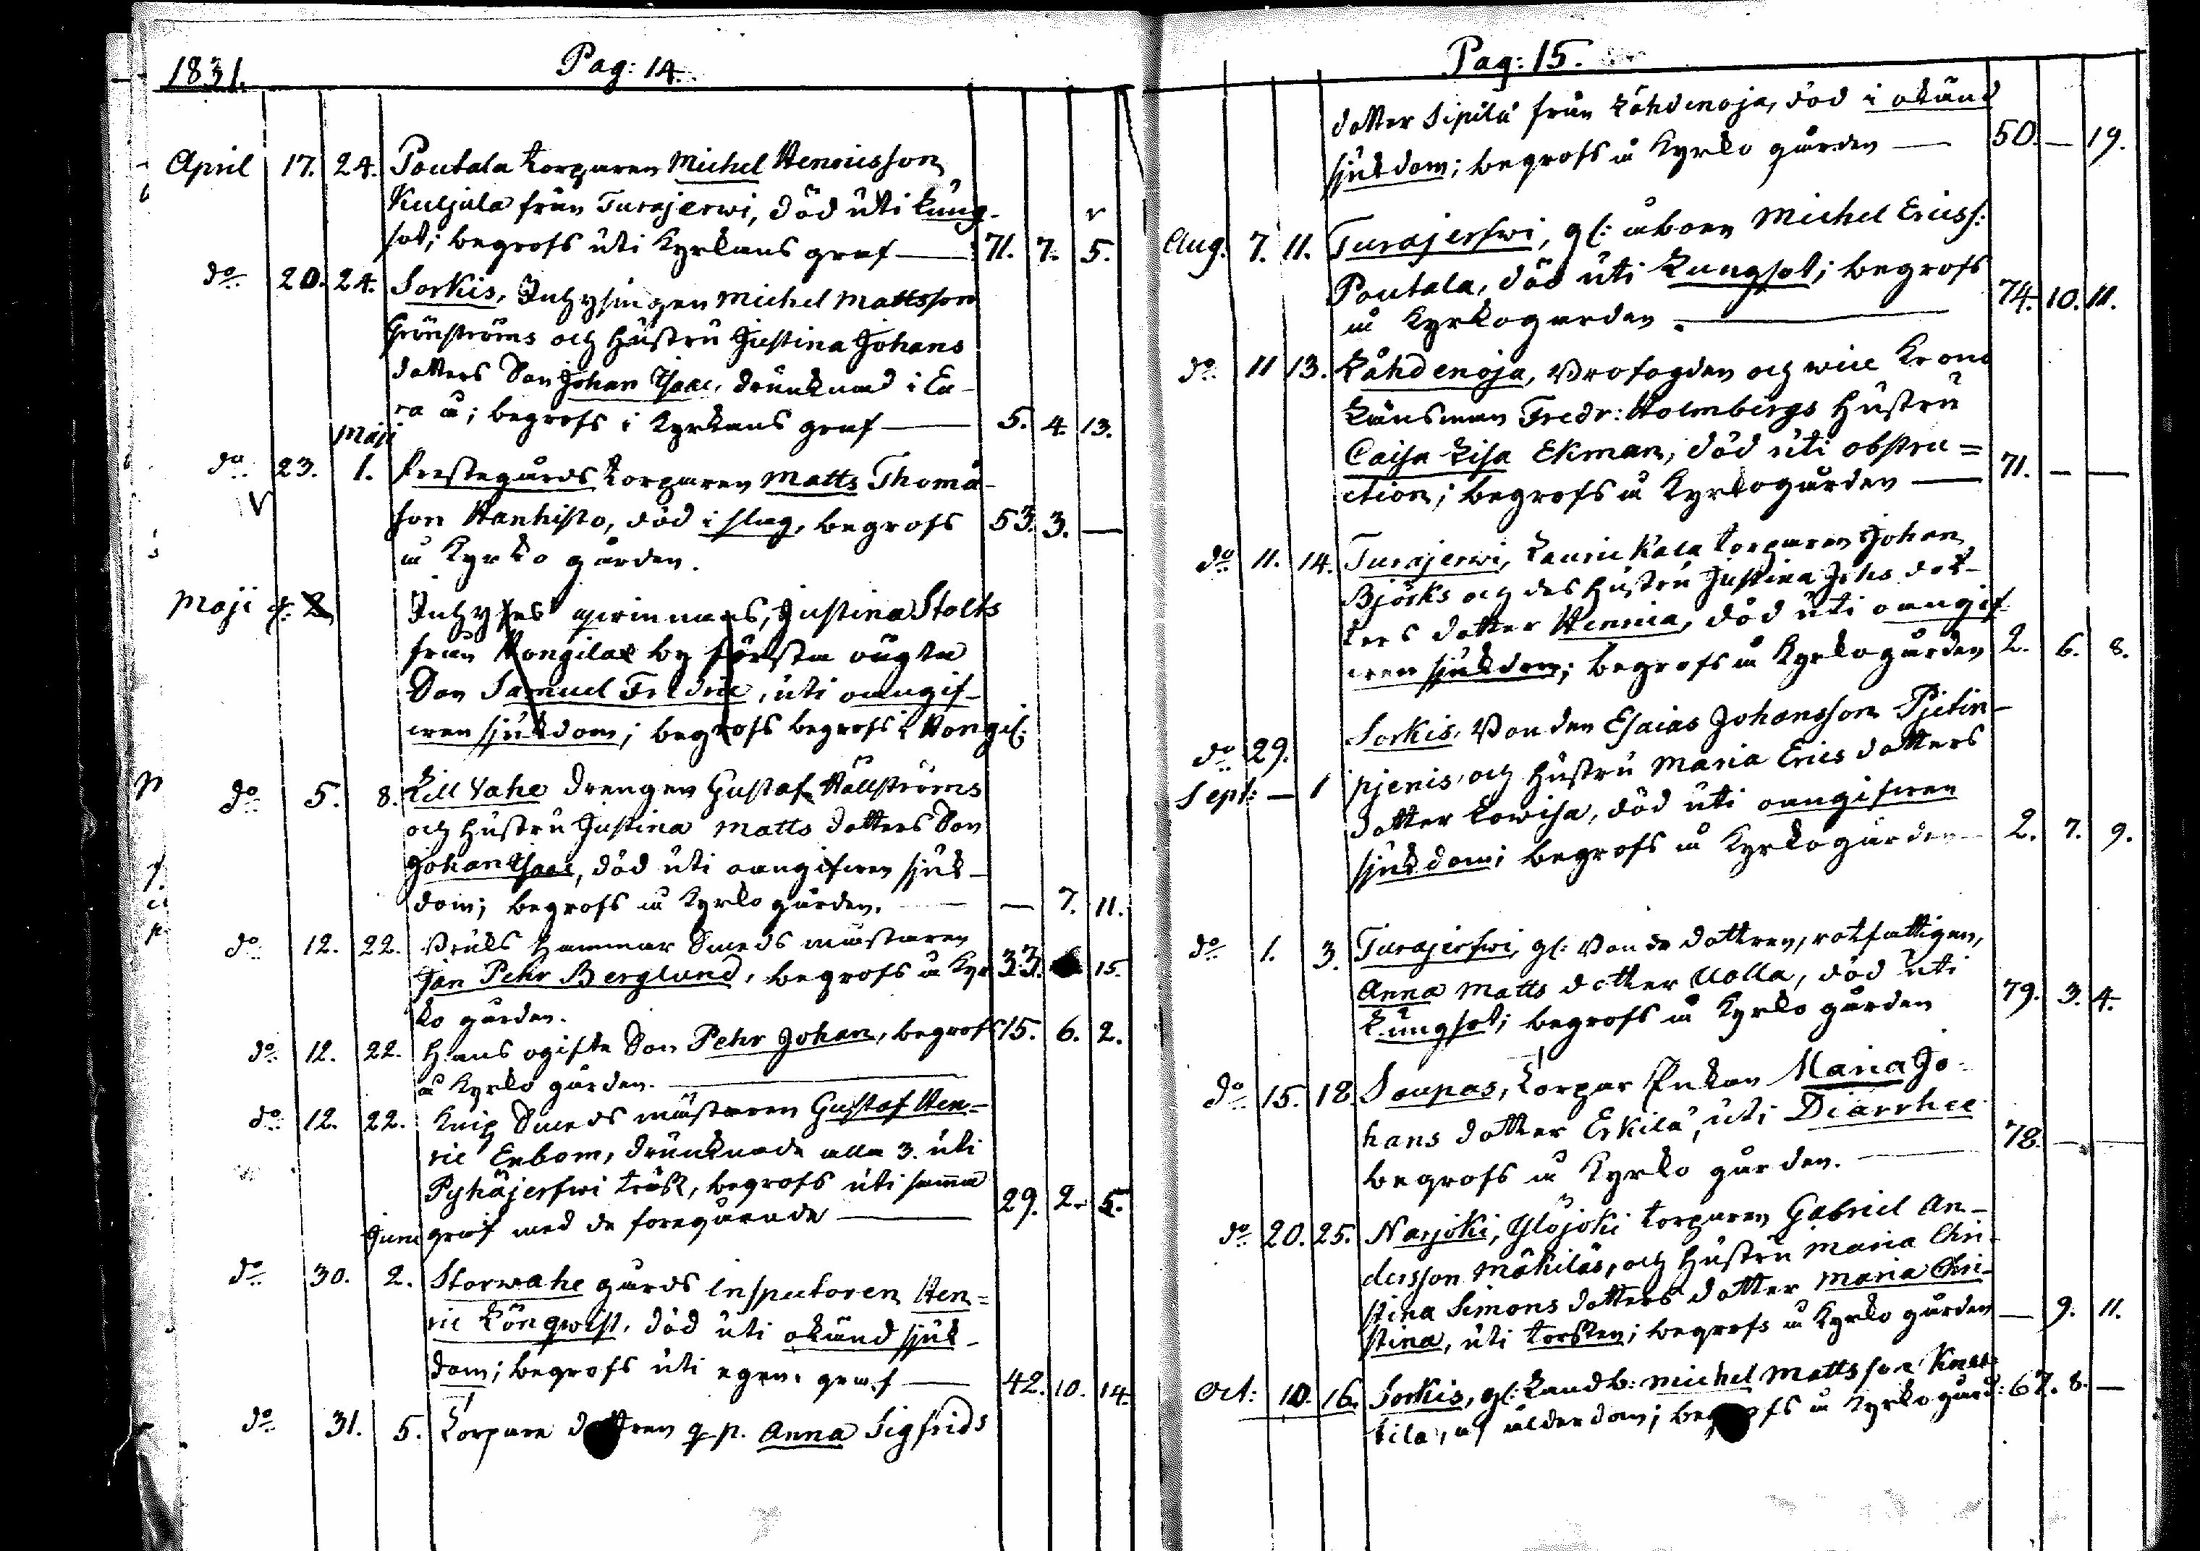 1831.
Pag: 14.
April 17. 24. Poutala torparen Michel Henricsson
Kuljala från Turajerwi, död uti lung-
sot; begrofs uti Kyrkans graf — 71. 7. 5.
do 20. 24. Sorkis, Inhysingen Michel Mattsson
Grönströms och Hustru Justina Johans
dotters Son Johan Isaac, drunknad i Eu-
ra å; begrofs i Kyrkans graf — 5. 4. 13.
Maji
do 23. 1. Prestegårds torparen Matts Thomå-
son Hanhisto, död i slag, begrofs 53. 3. —
å Kyrko gården.
Maji
Inhyses qwinnans, Justina Stolts
från Hongilax by första oägta
Son Samuel Fredric, uti oangif-
wen sjukdom; begrofs begrofs i Hongil:
do 5. 8. Lill Vahe drengen Gustaf Hällströms
och Hustru Justina Matts dotters Son
Johan Isaac, död uti oangifwen sjuk-
dom; begrofs å Kyrko gården. — 7. 11.
do 12. 22. Bruks Hammar Smeds mästaren
Jan Pehr Berglund, begrofs å Kyr 33. 15.
ko gården.
do 12. 22. Hans ogifte Son Pehr Johan, begrofs 15. 6. 2.
å Kyrko gården. —
do 12. 22. Knip Smeds mästaren Gustaf Hen-
ric Enbom, drunknade alla 3. uti
Pyhäjerfwi träsk, begrofs uti samma
graf med de foregående — 29. 2. 5.
Juni
do 30. 2. Storwahe gårds Inspectoren Hen-
ric Lönqwist, död uti okänd sjuk-
dom; begrofs uti egen graf — 42. 10. 14.
do 31. 5. Torpare dottren q. p. Anna Sigfrids
Pag: 15.
dotter Sipilä från Lähdenoja, död i okänd
sjukdom; begrofs å Kyrko gården — 50. — 19.
Aug. 7. 11. Turajerfwi, gl: åboen Michel Ericss:
Poutala, död uti Lungsot; begrofs
å Kyrkogården. — 74. 10. 11.
do 11 13. Lähdenoja, Profogden och wice Krono
Länsman Fredr: Holmbergs Hustru
Caisa Lisa Ekman, död uti obstru=
ction; begrofs å Kyrkogården — 71. — —
do 11. 14. Turajerwi, Lauric Kala torparen Johan
Björks och des Hustru Justina Johs dot-
ters dotter Hennica, död uti oangif-
wen sjukdom; begrofs å Kyrkogården 2. 6. 8.
do 29.
Sorkis, Bonden Esaias Johansson Pjetin-
Sept: — 1 pjenis och Hustru Maria Erics dotters
dotter Lowisa, död uti oangifwen
sjukdom; begrofs å Kyrkogården — 2. 7. 9.
do 1. 3. Turajerfwi, gl: Bonde dottren, rotfattigen,
Anna Matts dotter Uolla, död uti
Lungsot; begrofs å Kyrko gården 79. 3. 4.
do 15. 18. Soupas, Torpar Enkan Maria Jo-
hans dotter Erkilä, uti Diarrhee
begrofs å Kyrko gården. — 78. — —
do 20. 25. Narjoki, Ylöjoki torparen Gabriel An-
dersson Mäkiläs, och Hustru Maria Chri-
stina Simons dotters dotter Maria Chri-
stina, uti torsken; begrofs å Kyrko gården — 9. 11.
Oct: 10. 16. Sorkis, gl: Landb: Michel Mattsson
tila, af ålderdom; begrofs å Kyrko gård: 67. 8. —